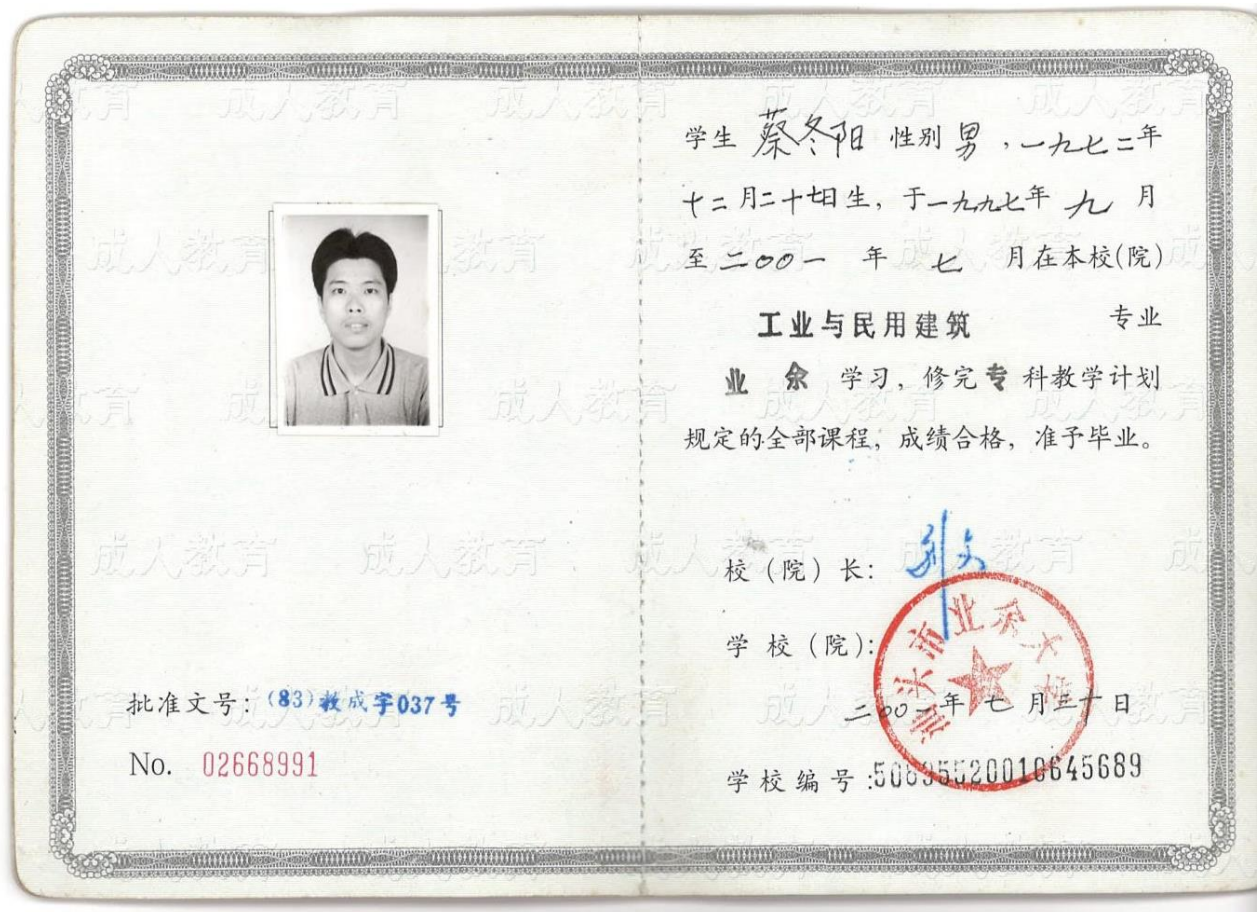 批准文号：(83)教成字037号
No. 02668991
学生 蔡冬阳 性别 男，一九七二年
十二月二十七日生，于一九九七年 九 月
至二〇〇一 年 七 月在本校(院)
工业与民用建筑 专业
业余 学习，修完专科教学计划
规定的全部课程，成绩合格，准予毕业。
校（院）长：
学校（院）：
汕头市业余大学
二〇〇一年 七 月三十日
学校编号:50835520010645689
成人教育